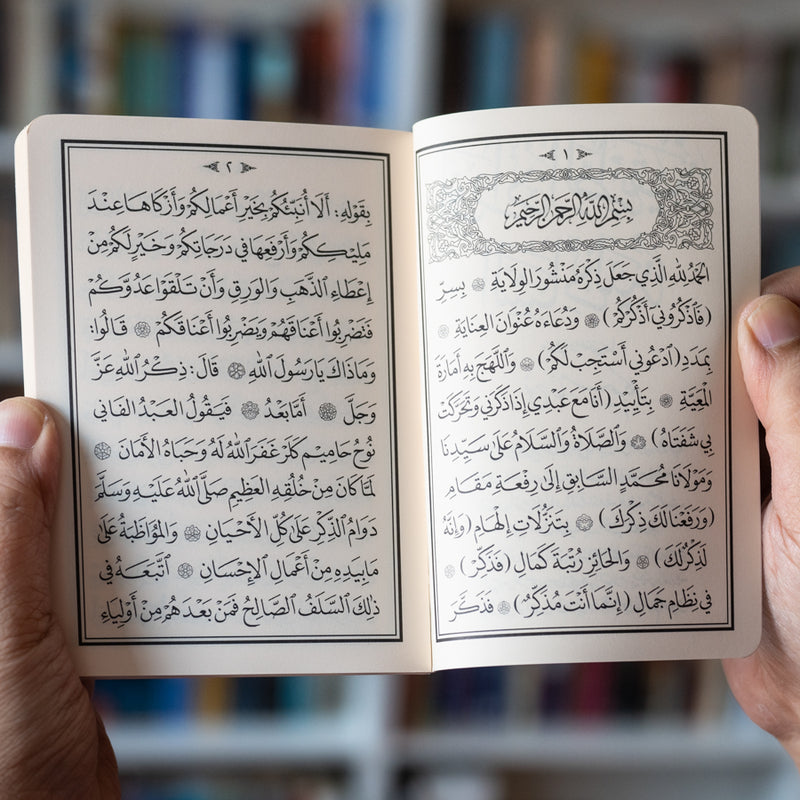 ١
بِسْمِ اللَّهِ الرَّحْمَٰنِ الرَّحِيمِ
اَلْحَمْدُ لِلَّهِ الَّذِي جَعَلَ ذِكْرَهُ مَنْشُورَ الْوِلَايَةِ ۞ بِسِرِّ
(فَاذْكُرُونِي أَذْكُرْكُمْ) ۞ وَدُعَاءَهُ عُنْوَانَ الْعِنَايَةِ ۞
بِمَدَدِ (ادْعُونِي أَسْتَجِبْ لَكُمْ) ۞ وَاللَّهْجَ بِهِ أَمَارَةَ
الْمَعِيَّةِ ۞ بِتَأْيِيدِ (أَنَا مَعَ عَبْدِي إِذَا ذَكَرَنِي وَتَحَرَّكَتْ
بِي شَفَتَاهُ) ۞ وَالصَّلَاةُ وَالسَّلَامُ عَلَى سَيِّدِنَا
وَمَوْلَانَا مُحَمَّدٍ السَّابِقِ إِلَى رِفْعَةِ مَقَامِ
(وَرَفَعْنَا لَكَ ذِكْرَكَ) ۞ بِتَنَزُّلَاتِ إِلْهَامِ (وَإِنَّهُ
لَذِكْرٌ لَكَ) ۞ وَالْحَائِزِ رُتْبَةَ كَمَالِ (فَذَكِّرْ) ۞
فِي نِظَامِ جَمَالِ (إِنَّمَا أَنْتَ مُذَكِّرٌ) ۞ فَذَكَّرَ
٢
بِقَوْلِهِ: أَلَا أُنَبِّئُكُمْ بِخَيْرِ أَعْمَالِكُمْ وَأَزْكَاهَا عِنْدَ
مَلِيكِكُمْ وَأَرْفَعِهَا فِي دَرَجَاتِكُمْ وَخَيْرٍ لَكُمْ مِنْ
إِعْطَاءِ الذَّهَبِ وَالْوَرِقِ وَأَنْ تَلْقَوْا عَدُوَّكُمْ
فَتَضْرِبُوا أَعْنَاقَهُمْ وَيَضْرِبُوا أَعْنَاقَكُمْ ۞ قَالُوا:
وَمَا ذَاكَ يَا رَسُولَ اللَّهِ ۞ قَالَ: ذِكْرُ اللَّهِ عَزَّ
وَجَلَّ ۞ أَمَّا بَعْدُ ۞ فَيَقُولُ الْعَبْدُ الْفَانِي
نُوحْ حَامِيم كَلَرْ غَفَرَ اللَّهُ لَهُ وَحَبَاهُ الْأَمَانَ ۞
لَمَّا كَانَ مِنْ خُلُقِهِ الْعَظِيمِ صَلَّى اللَّهُ عَلَيْهِ وَسَلَّمَ
دَوَامُ الذِّكْرِ عَلَى كُلِّ الْأَحْيَانِ ۞ وَالْمُوَاظَبَةُ عَلَى
مَا بِيَدِهِ مِنْ أَعْمَالِ الْإِحْسَانِ ۞ اتَّبَعَهُ فِي
ذَلِكَ السَّلَفُ الصَّالِحُ فَمَنْ بَعْدَهُمْ مِنْ أَوْلِيَاءِ